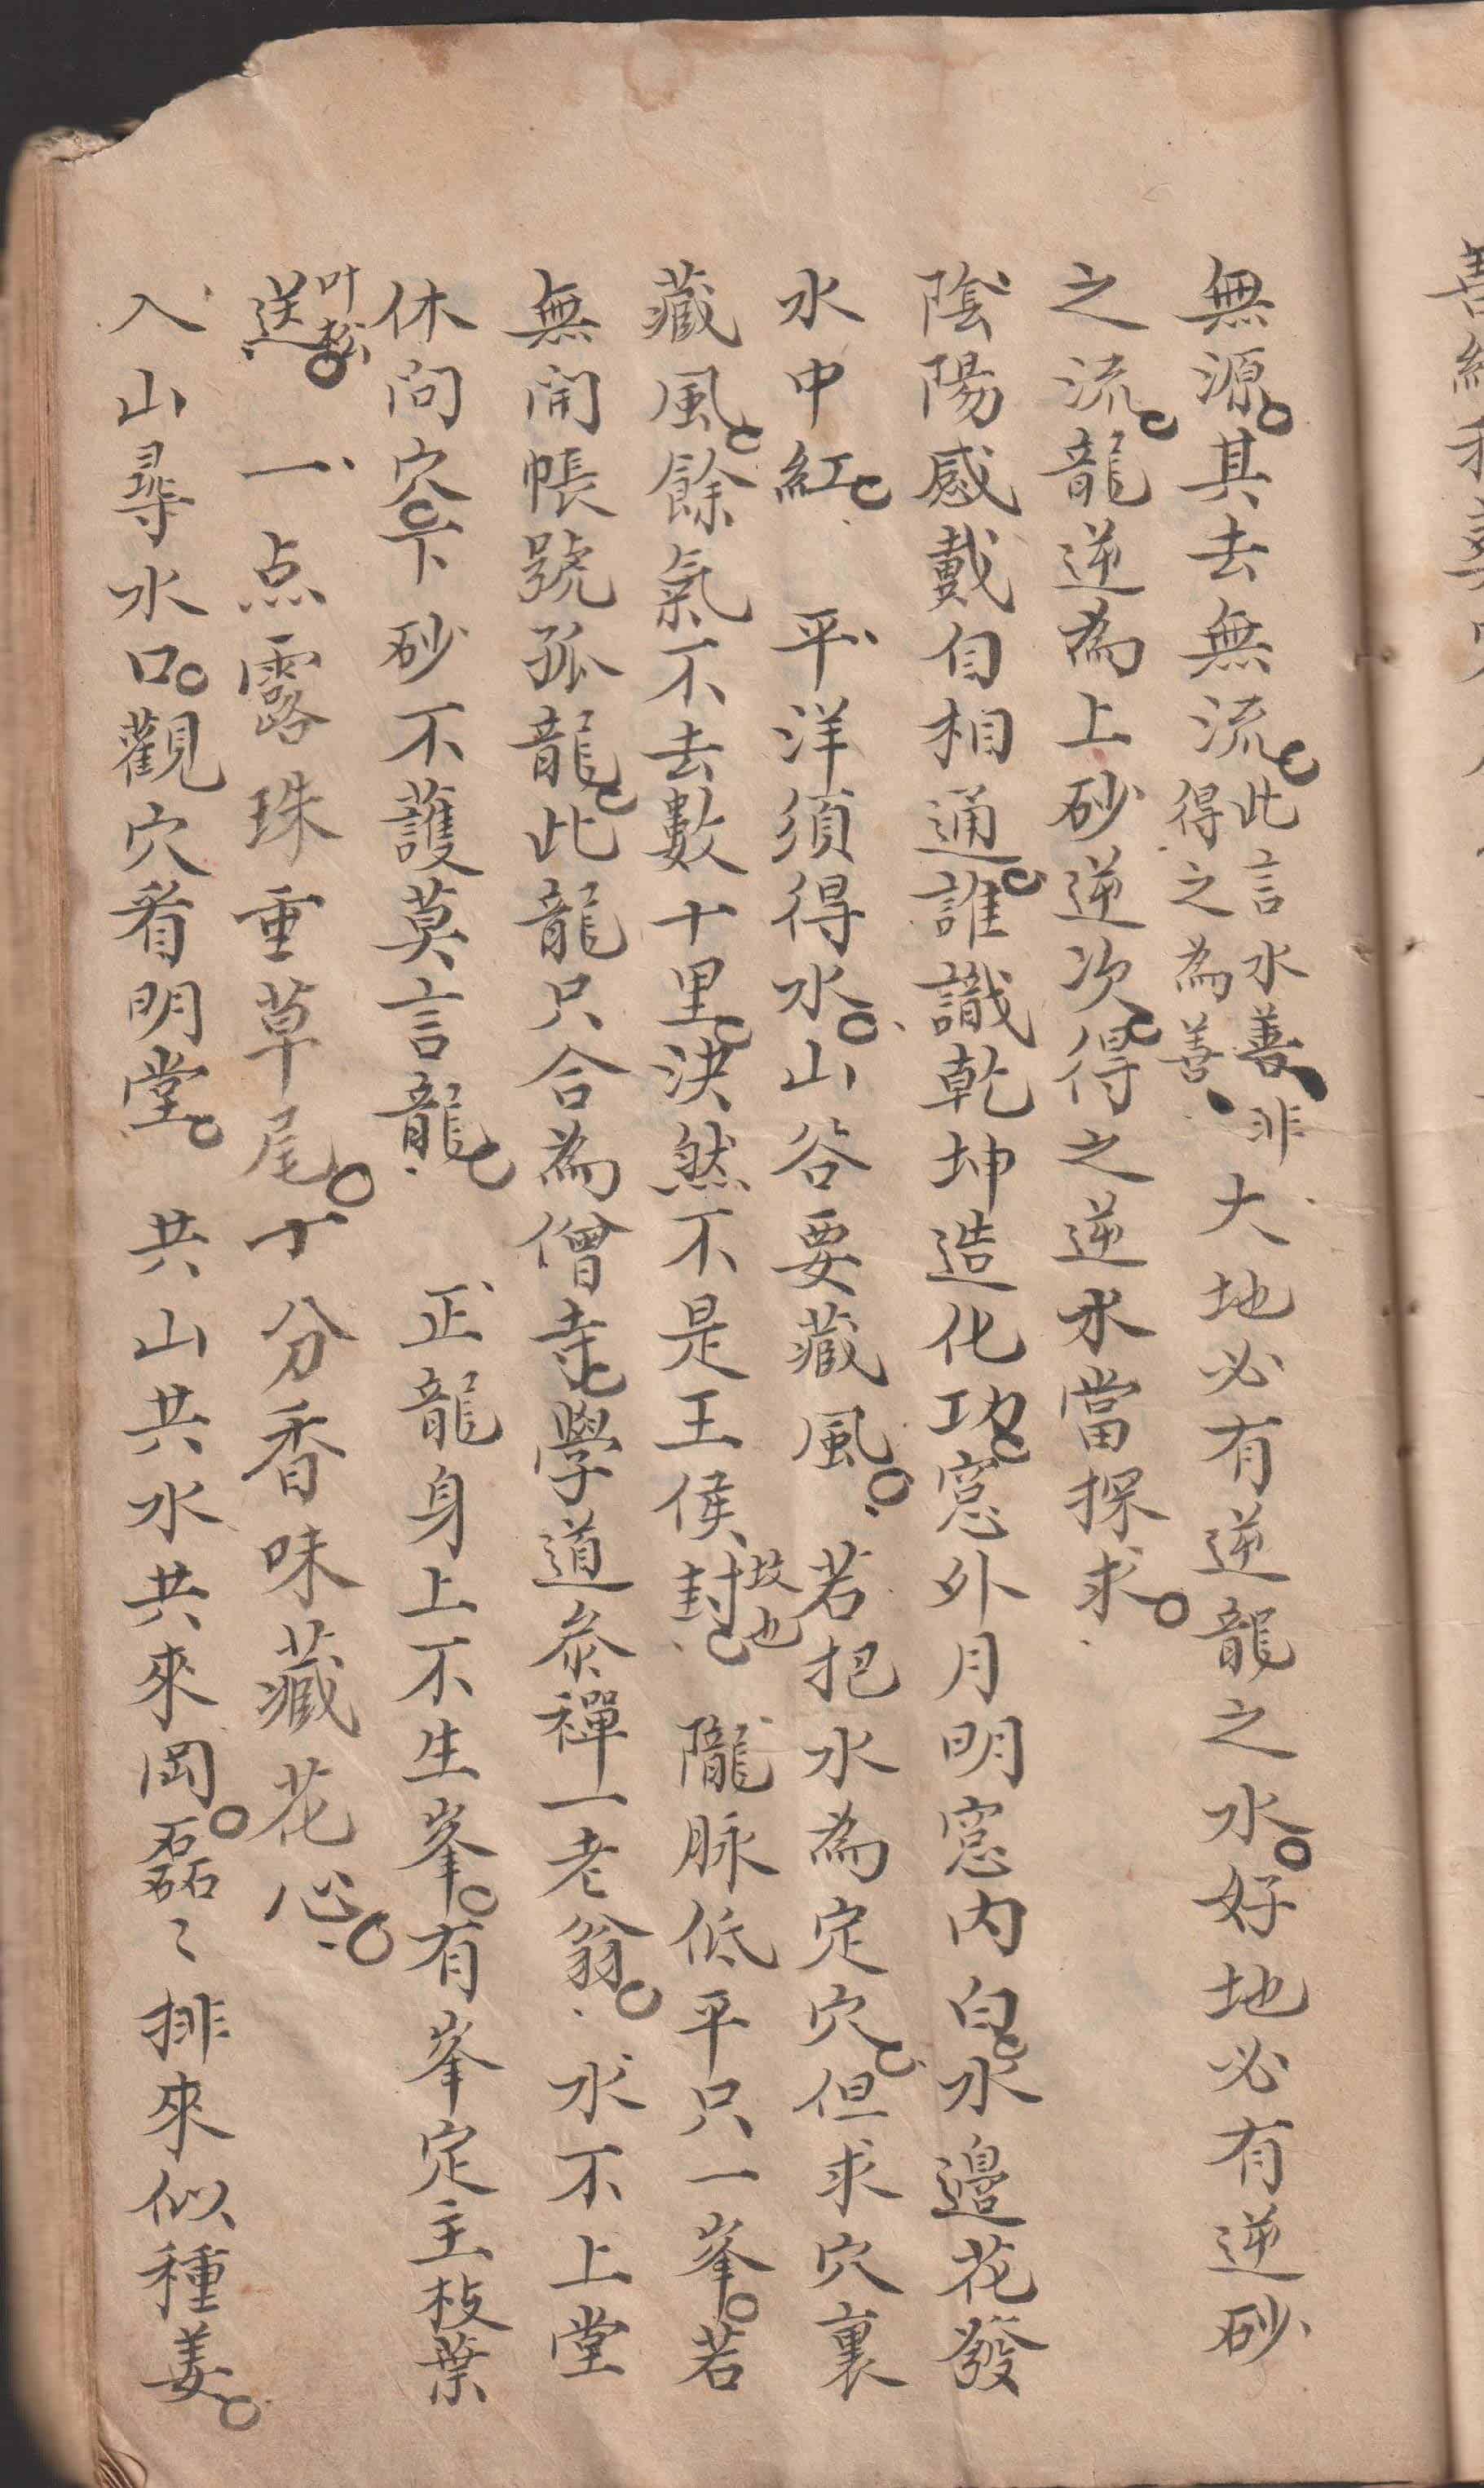 無源其去無流此言水善非得之為善大地必有逆龍之水好地必有逆砂
之流龍逆為上砂逆次得之逆水當探求
陰陽感戴自相通誰識乾坤造化功窓外月明窓內白水邉花發
水中紅 平洋須得水山谷要藏風 若把水為定穴但求穴裏
藏風餘氣不去數十里決然不是王侯封坟也 隴脉低平只一峯若
無開帳號孤龍此龍只合為僧寺學道叅禪一老翁 水不上堂
休問穴下砂不護莫言龍 正龍身上不生峯有峯定主枝葉
送叶松 一点露珠重草尾十分香味藏花心
入山尋水口觀穴看明堂 共山共水共來岡磊〻排來似種姜